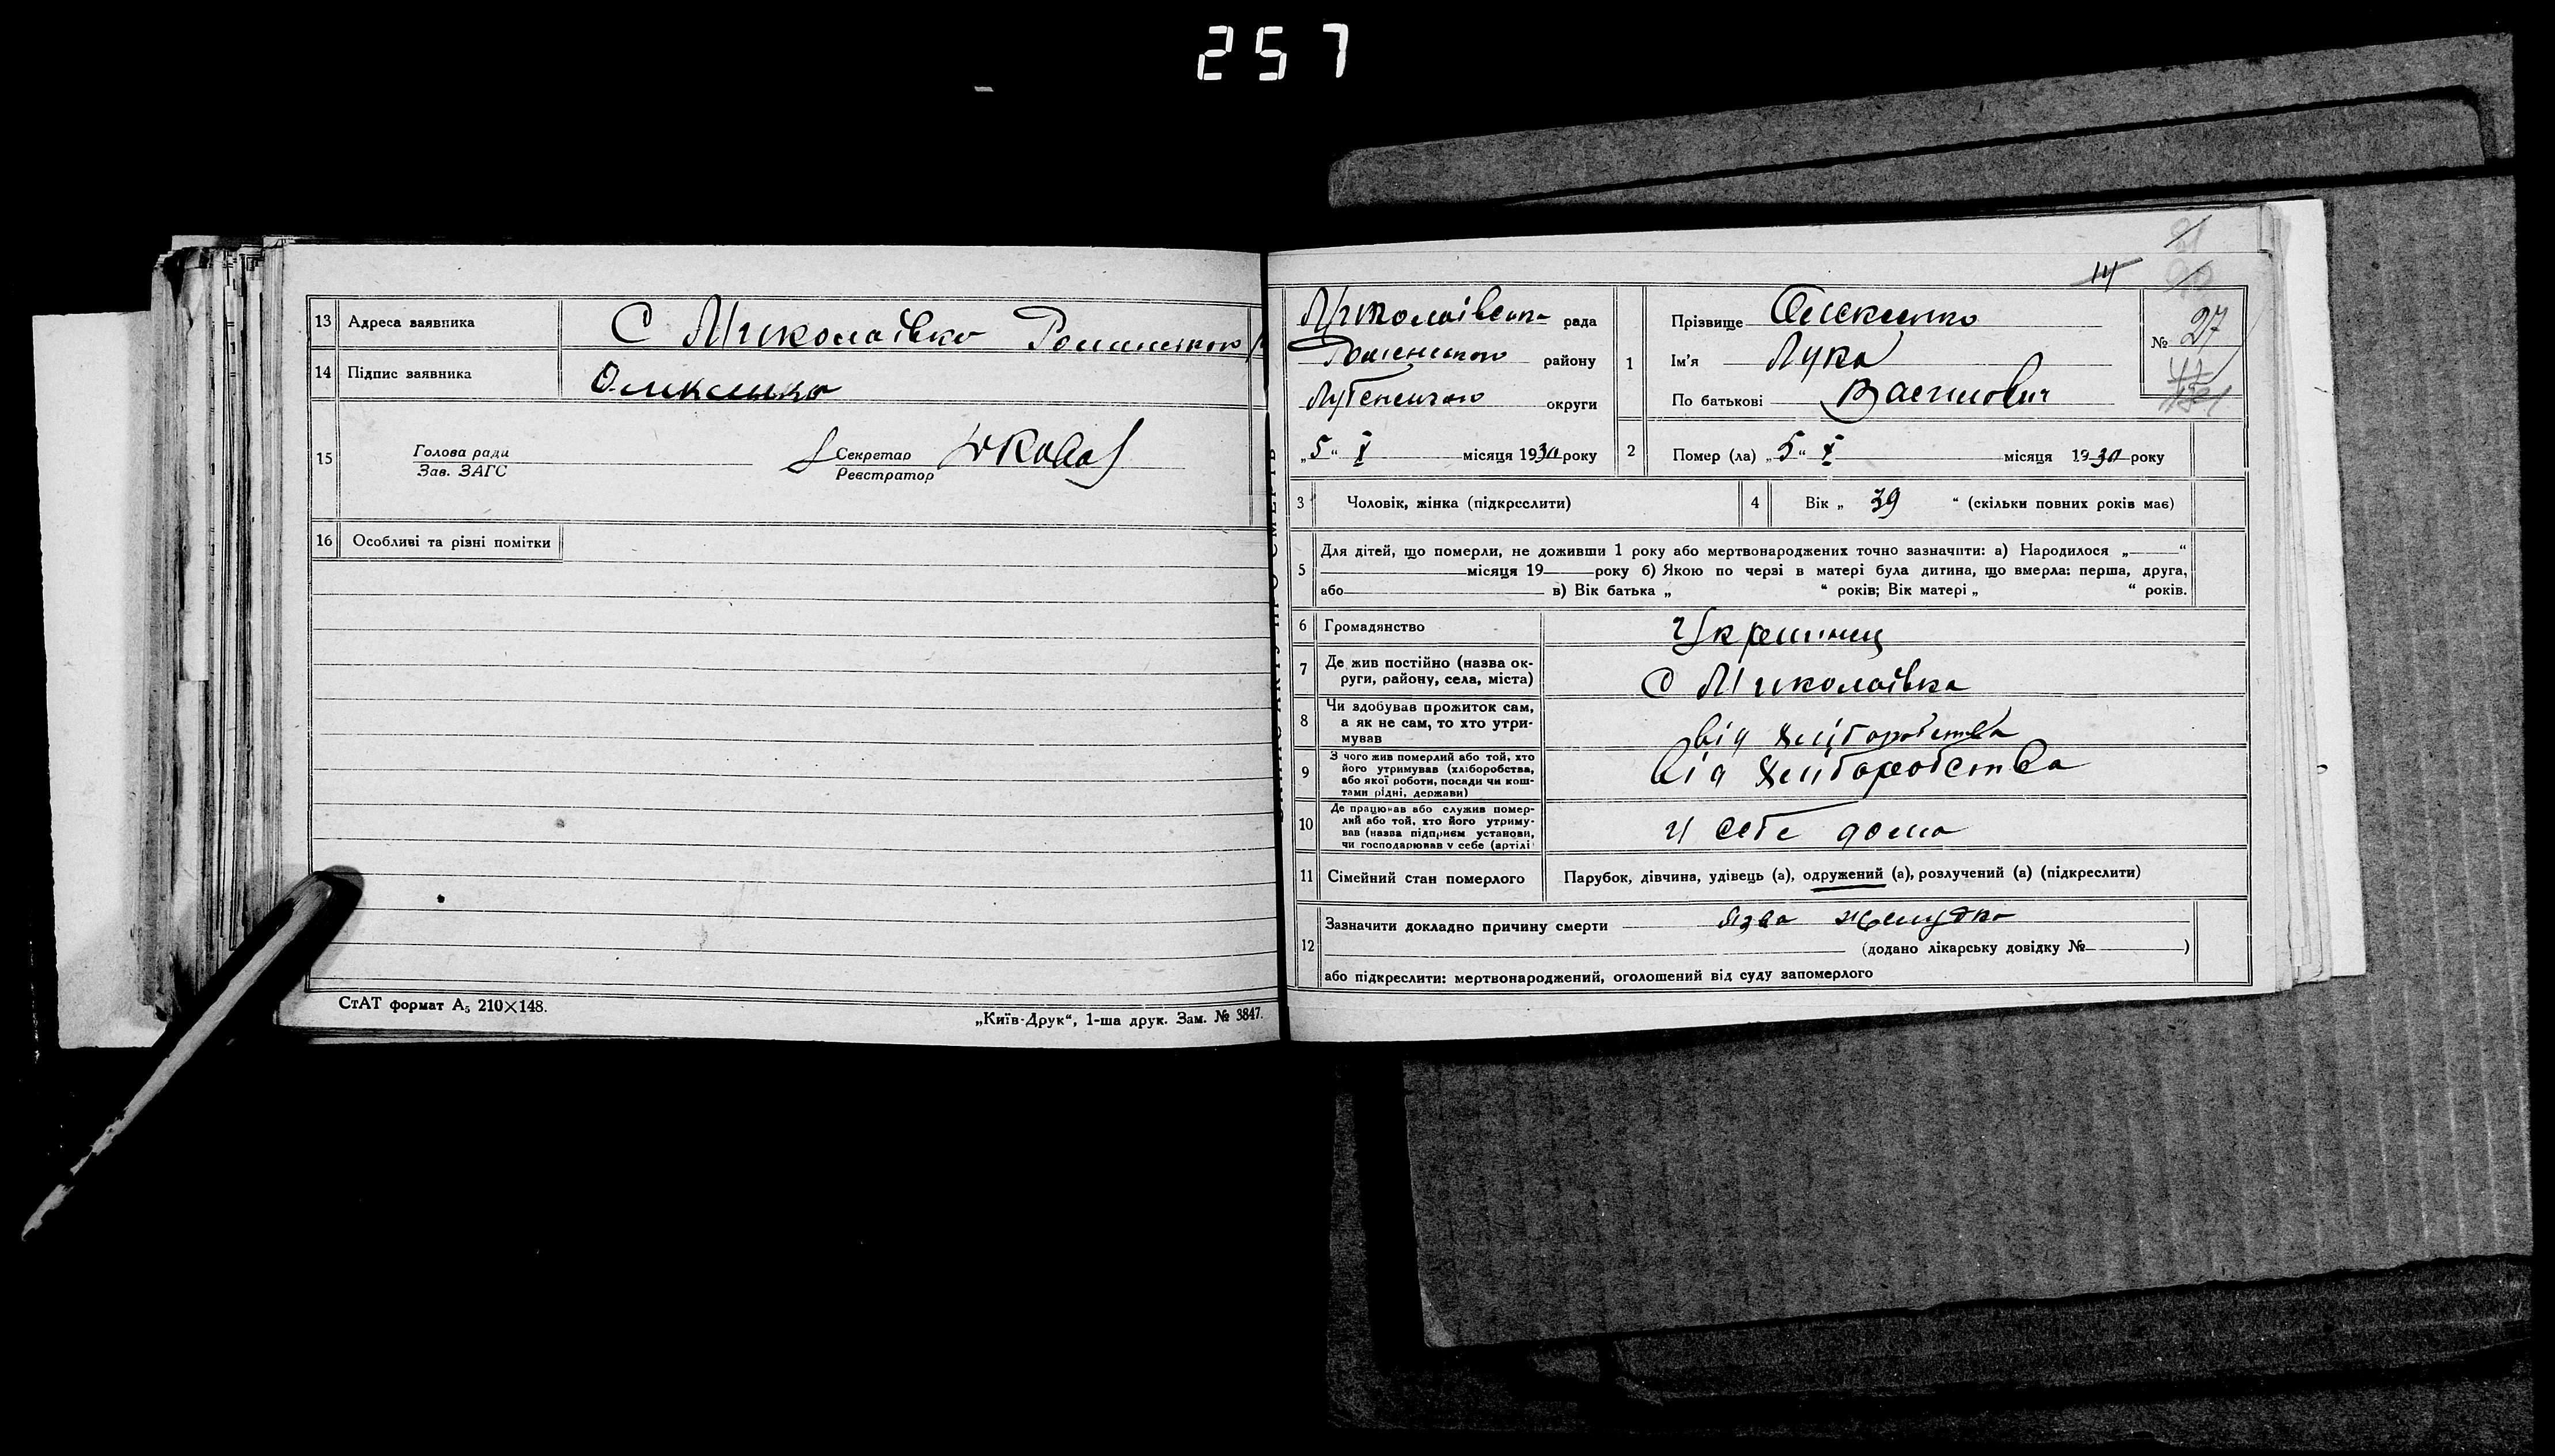 257
13 Адреса заявника С Миколаївка
14 Підпис заявника
15 Голова ради
Зав. ЗАГС
Секретар
Реєстратор
16 Особливі та різні помітки
СтАТ формат А5 210×148.
„Київ-Друк“, 1-ша друк. Зам. № 3847.
14
Миколаївська рада
району
округи
„5“ X місяця 1930 року
1 Прізвище
Ім’я Лука
По батькові Василович
№ 27
2 Помер (ла) „5“ X місяця 1930 року
3 Чоловік, жінка (підкреслити)
4 Вік „ 39 “ (скільки повних років має)
5 Для дітей, що померли, не доживши 1 року або мертвонароджених точно зазначити: а) Народилося „ “
місяця 19 року б) Якою по черзі в матері була дитина, що вмерла: перша, друга,
або в) Вік батька „ “ років; Вік матері „ “ років.
6 Громадянство Украинец
7 Де жив постійно (назва ок-
руги, району, села, міста) С Миколаівка
8 Чи здобував прожиток сам,
а як не сам, то хто утри-
мував від хліборобства
9 З чого жив померлий або той, хто
його утримував (хліборобства,
або якої роботи, посади чи кош-
тами рідні, держави) від хліборобства
10 Де працював або служив помер-
лий або той, хто його утриму-
вав (назва підприєм установи,
чи господарював у себе (артілі У себе дома
11 Сімейний стан померлого Парубок, дівчина, удівець (а), одружений (а), розлучений (а) (підкреслити)
12 Зазначити докладно причину смерти Язва желудка
(додано лікарську довідку № )
або підкреслити: мертвонароджений, оголошений від суду запомерлого